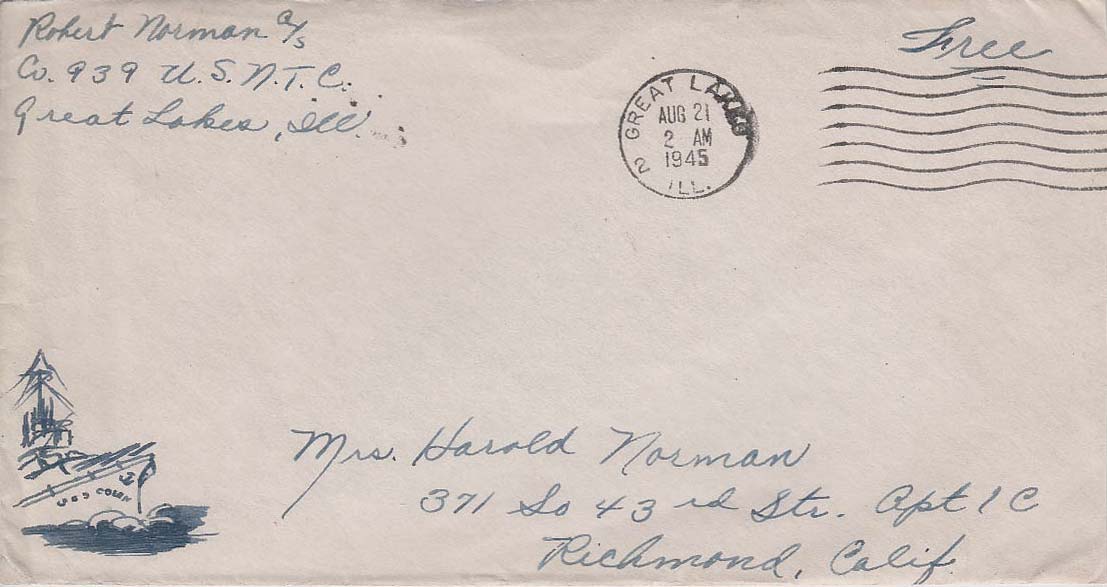 Robert Norman a/s
Co. 939 U.S.N.T.C.
Great Lakes, Ill.
Free
GREAT LAKES
AUG 21
2 AM
1945
2 ILL.
Mrs. Harold Norman
371 So 43rd Str. Apt 1C
Richmond, Calif.